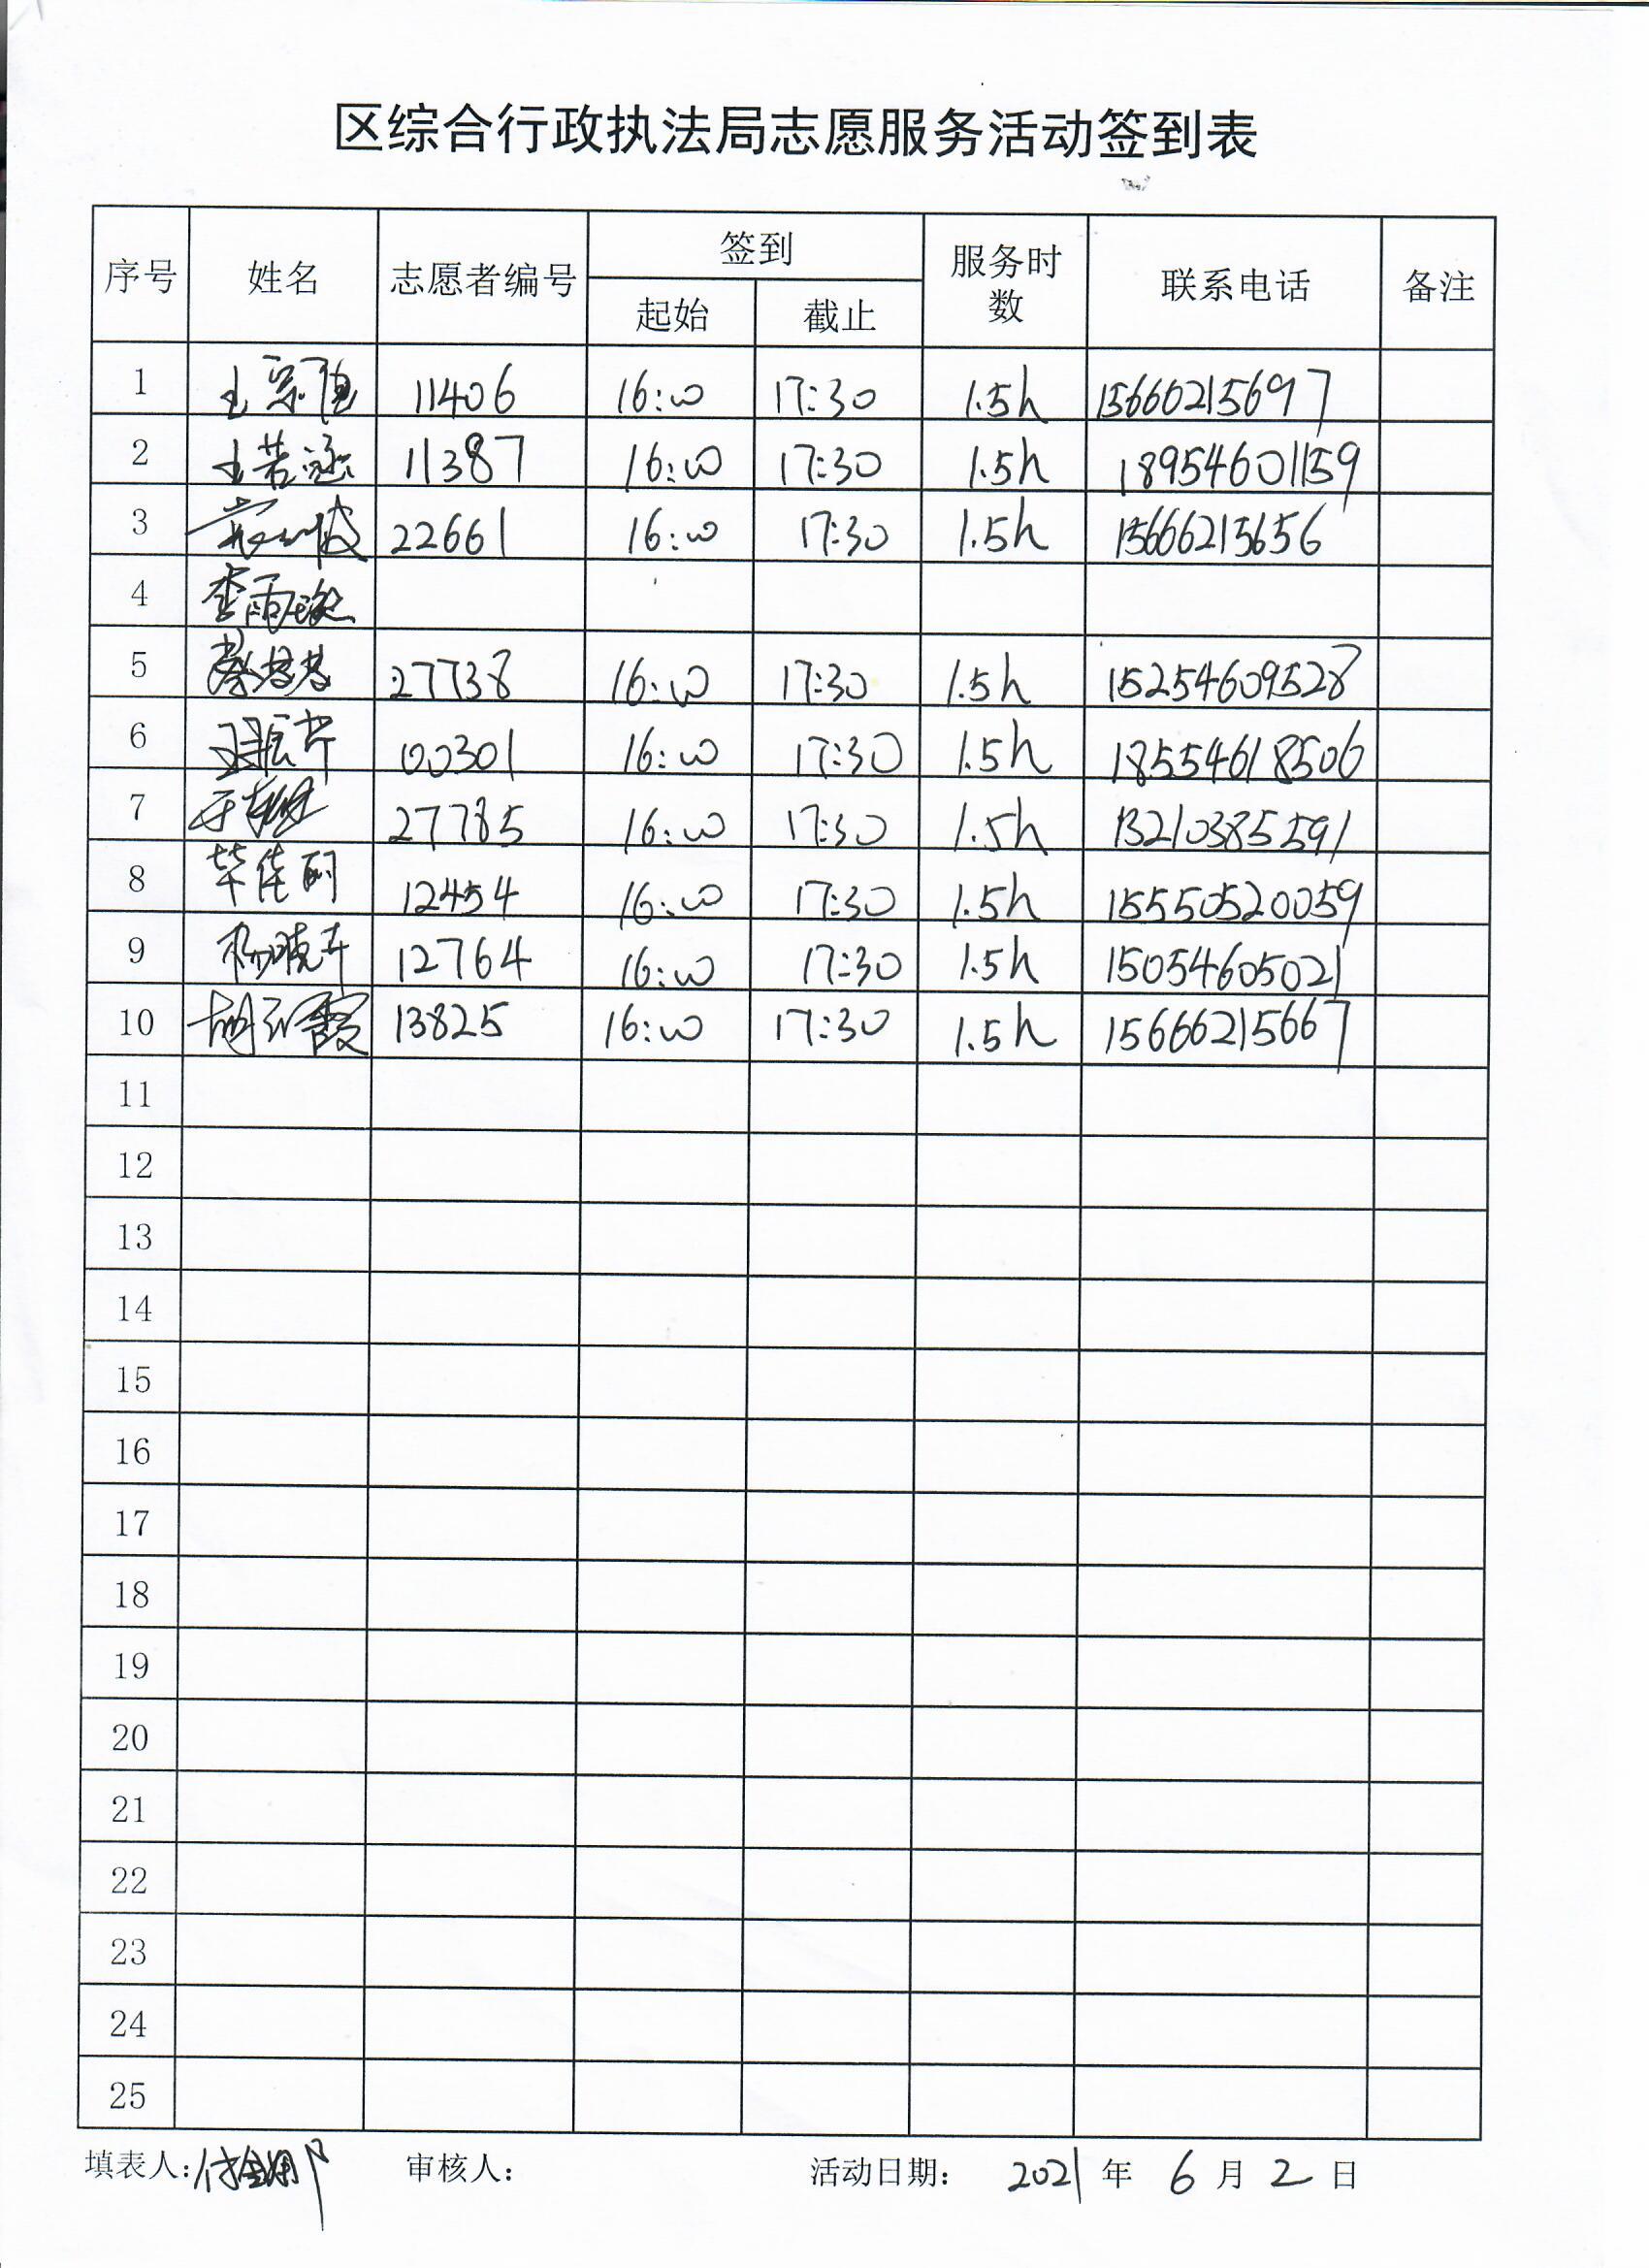 区综合行政执法局志愿服务活动签到表
序号 姓名 志愿者编号 签到 服务时数 联系电话 备注
起始 截止
1 王宗恒 11406 16:00 17:30 1.5h 15666215697
2 王若涵 11387 16:00 17:30 1.5h 18954601159
3 22661 16:00 17:30 1.5h 15666215656
4 李雨璇
5 27738 16:00 17:30 1.5h 15254609528
6 00301 16:00 17:30 1.5h 18554618506
7 27785 16:00 17:30 1.5h 13210385591
8 毕佳 12454 16:00 17:30 1.5h 15550520059
9 杨晓卉 12764 16:00 17:30 1.5h 15054605021
10 胡 霞 13825 16:00 17:30 1.5h 15666215667
11
12
13
14
15
16
17
18
19
20
21
22
23
24
25
填表人: 审核人: 活动日期: 2021 年 6 月 2 日